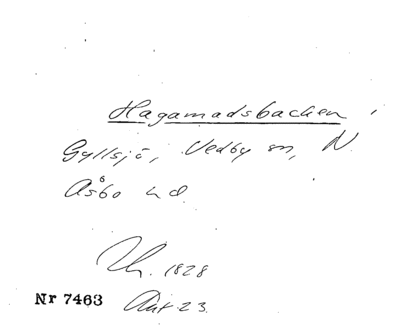 Hagamadsbacken,
Gyllsjö, Vedby sn, N.
Åsbo hd.
1828
Nr 7463 Akt 23.